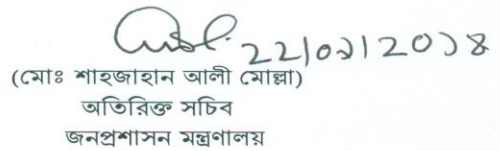 ২২/০১/২০১৪
(মোঃ শাহজাহান আলী মোল্লা)
অতিরিক্ত সচিব
জনপ্রশাসন মন্ত্রণালয়